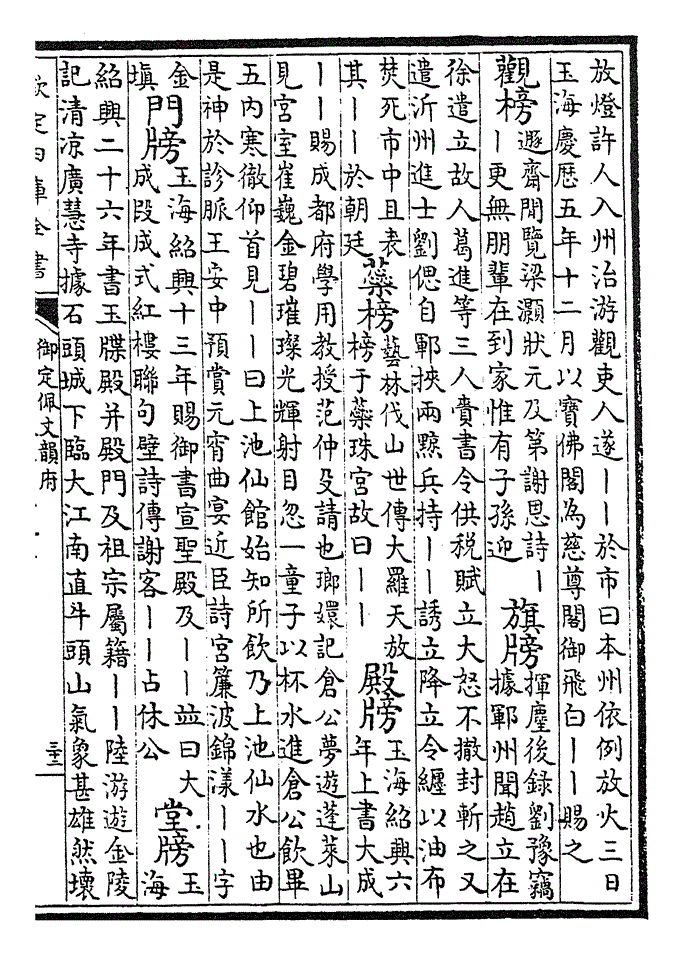 放燈許人入州治游觀吏人遂——於市曰本州依例放火三日
玉海慶厯五年十二月以寳佛閣為慈尊閣御飛白——賜之
觀榜
遯齋閒覽梁灝狀元及第謝恩詩—
—更無朋輩在到家惟有子孫迎
旗牓
揮麈後録劉豫竊
據鄆州聞趙立在
徐遣立故人葛進等三人賫書令供税賦立大怒不撤封斬之又
遣沂州進士劉偲自鄆挾兩黥兵持——誘立降立令纒以油布
焚死市中且表
其——於朝廷
蘂榜
藝林伐山世傳大羅天放
榜于蘂珠宮故曰——
殿牓
玉海紹興六
年上書大成
——賜成都府學用教授范仲殳請也瑯嬛記倉公夢遊蓬萊山
見宮室崔巍金碧璀璨光輝射目忽一童子以杯水進倉公飲畢
五内寒徹仰首見——曰上池仙館始知所飲乃上池仙水也由
是神於診脈王安中預賞元宵曲宴近臣詩宮簾波錦漾——字
金
塡
門牓
玉海紹興十三年賜御書宣聖殿及——並曰大
成段成式紅樓聯句壁詩傳謝客——占休公
堂牓
玉
海
紹興二十六年書玉牒殿并殿門及祖宗屬籍——陸游遊金陵
記清凉廣慧寺據石頭城下臨大江南直牛頭山氣象甚雄然壞
欽定四庫全書
御定佩文韻府
三十二